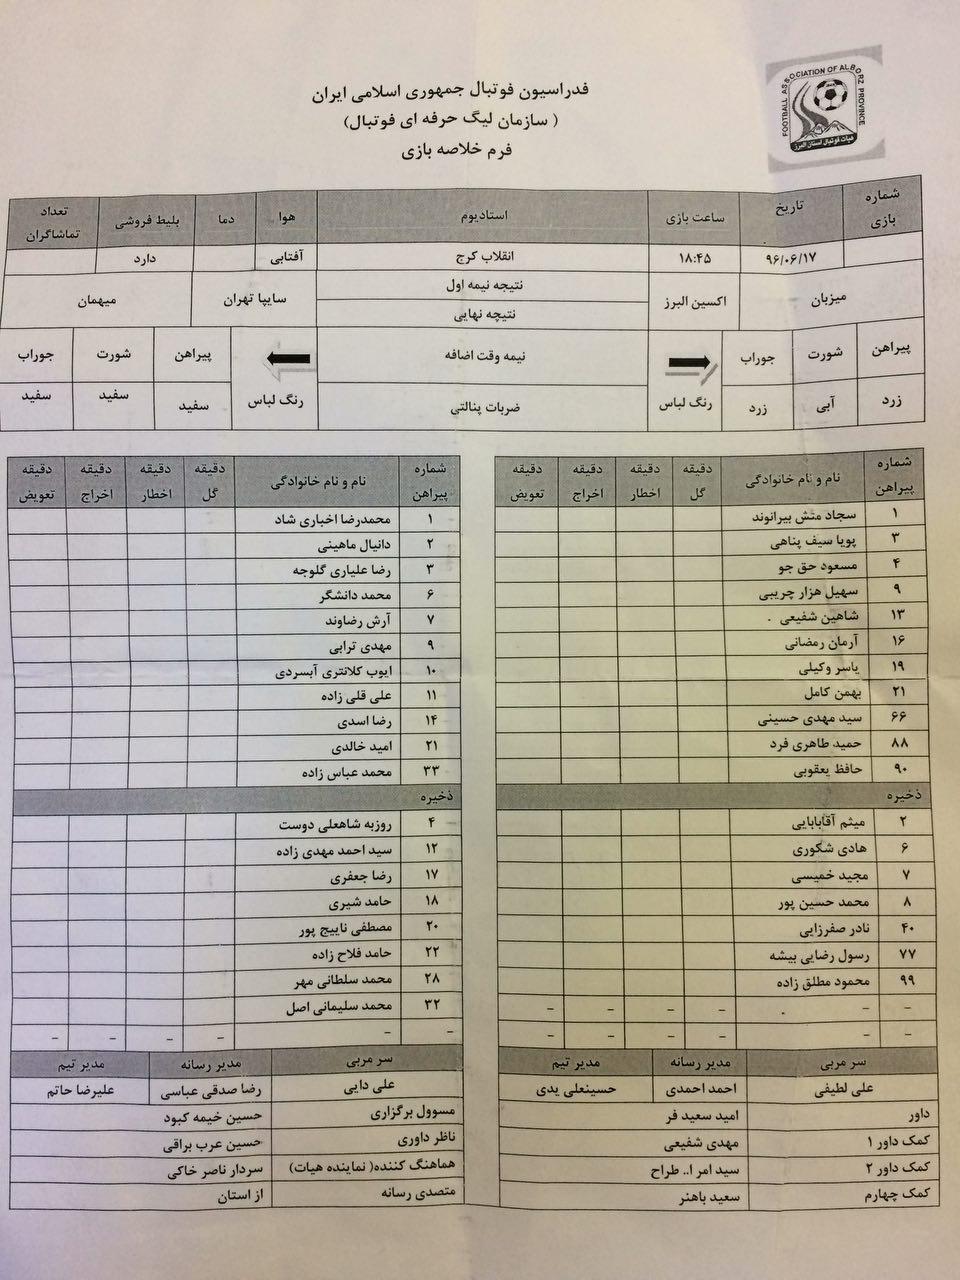 FOOTBALL ASSOCIATION OF ALBORZ PROVINCE
هیات فوتبال استان البرز
فدراسیون فوتبال جمهوری اسلامی ایران
( سازمان لیگ حرفه ای فوتبال)
فرم خلاصه بازی
شماره بازی تاریخ ساعت بازی استادیوم هوا دما بلیط فروشی تعداد تماشاگران
۹۶/۰۶/۱۷ ۱۸:۴۵ انقلاب کرج آفتابی دارد
میزبان اکسین البرز نتیجه نیمه اول سایپا تهران میهمان
نتیچه نهایی
پیراهن شورت جوراب رنگ لباس نیمه وقت اضافه رنگ لباس پیراهن شورت جوراب
زرد آبی زرد ضربات پنالتی سفید سفید سفید
شماره پیراهن نام و نام خانوادگی دقیقه گل دقیقه اخطار دقیقه اخراج دقیقه تعویض
۱ سجاد منش بیرانوند
۳ پویا سیف پناهی
۴ مسعود حق جو
۹ سهیل هزار چریبی
۱۳ شاهین شفیعی
۱۶ آرمان رمضانی
۱۹ یاسر وکیلی
۲۱ بهمن کامل
۶۶ سید مهدی حسینی
۸۸ حمید طاهری فرد
۹۰ حافظ یعقوبی
ذخیره
۲ میثم آقابابایی
۶ هادی شکوری
۷ مجید خمیسی
۸ محمد حسین پور
۴۰ نادر صفرزایی
۷۷ رسول رضایی بیشه
۹۹ محمود مطلق زاده
– – – – – –
– – – – – –
سر مربی مدیر رسانه مدیر تیم
علی لطیفی احمد احمدی حسینعلی یدی
داور امید سعید فر
کمک داور ۱ مهدی شفیعی
کمک داور ۲ سید امر ا.. طراح
کمک چهارم سعید باهنر
شماره پیراهن نام و نام خانوادگی دقیقه گل دقیقه اخطار دقیقه اخراج دقیقه تعویض
۱ محمدرضا اخباری شاد
۲ دانیال ماهینی
۳ رضا علیاری گلوجه
۶ محمد دانشگر
۷ آرش رضاوند
۹ مهدی ترابی
۱۰ ایوب کلانتری آبسردی
۱۱ علی قلی زاده
۱۴ رضا اسدی
۲۱ امید خالدی
۳۳ محمد عباس زاده
ذخیره
۴ روزبه شاهعلی دوست
۱۲ سید احمد مهدی زاده
۱۷ رضا جعفری
۱۸ حامد شیری
۲۰ مصطفی ناییج پور
۲۲ حامد فلاح زاده
۲۸ محمد سلطانی مهر
۳۲ محمد سلیمانی اصل
– – – – – –
سر مربی مدیر رسانه مدیر تیم
علی دایی رضا صدقی عباسی علیرضا حاتم
مسوول برگزاری حسین خیمه کبود
ناظر داوری حسین عرب براقی
هماهنگ کننده( نماینده هیات) سردار ناصر خاکی
متصدی رسانه از استان